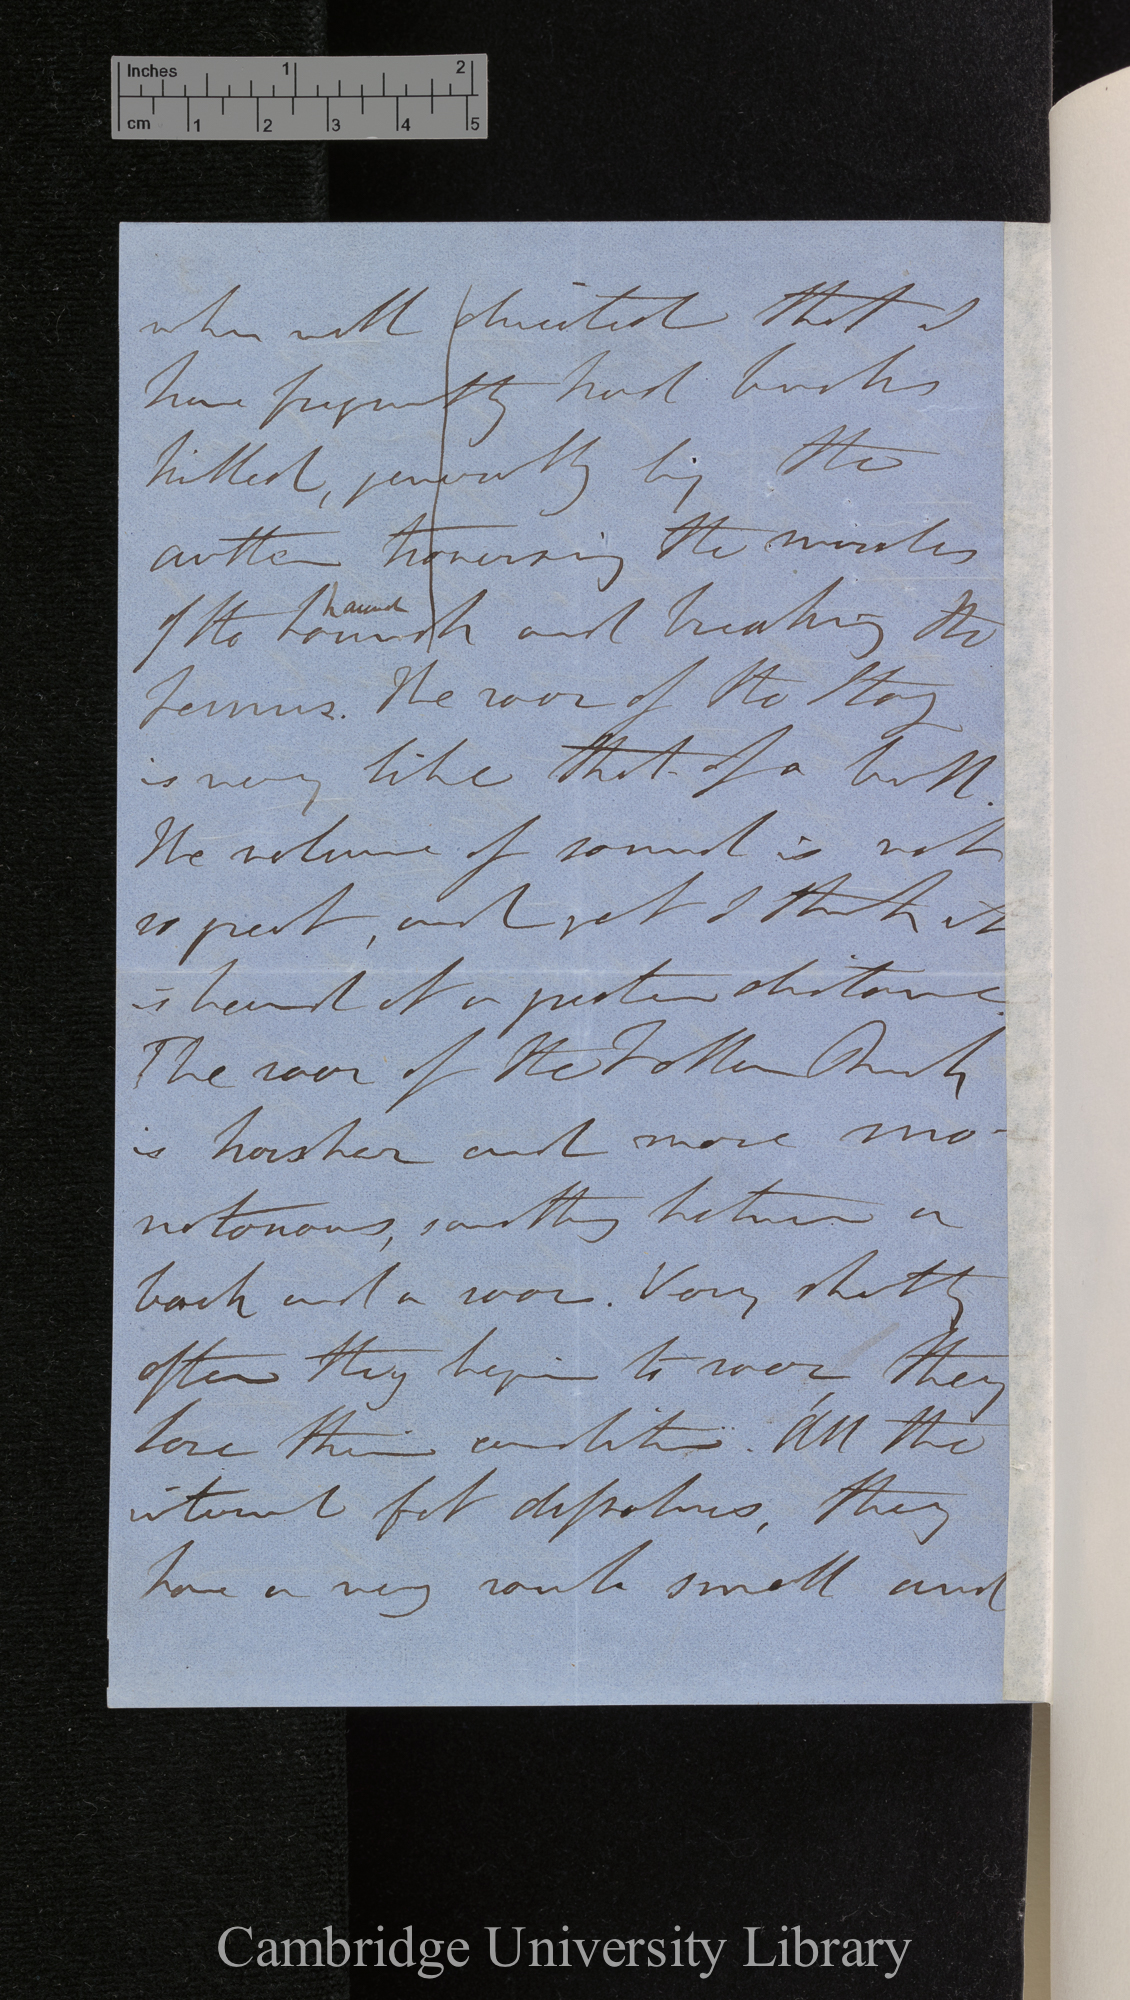 Inches 1 2
cm 1 2 3 4 5
when well directed that I
have frequently had bucks
killed, generally by the
antler traversing the muscles
haunch
of the haunch and breaking the
femurs. The roar of the Stag
is very like that of a bull.
The volume of sound is not
so great, and yet I think it
is heard at a greater distance.
The roar of the Fallow Buck
is harsher and more mo-
notonous, something between a
bark and a roar. Very shortly
after they begin to roar they
lose their condition. All the
internal fat dissolves, they
have a very rank smell and
Cambridge University Library